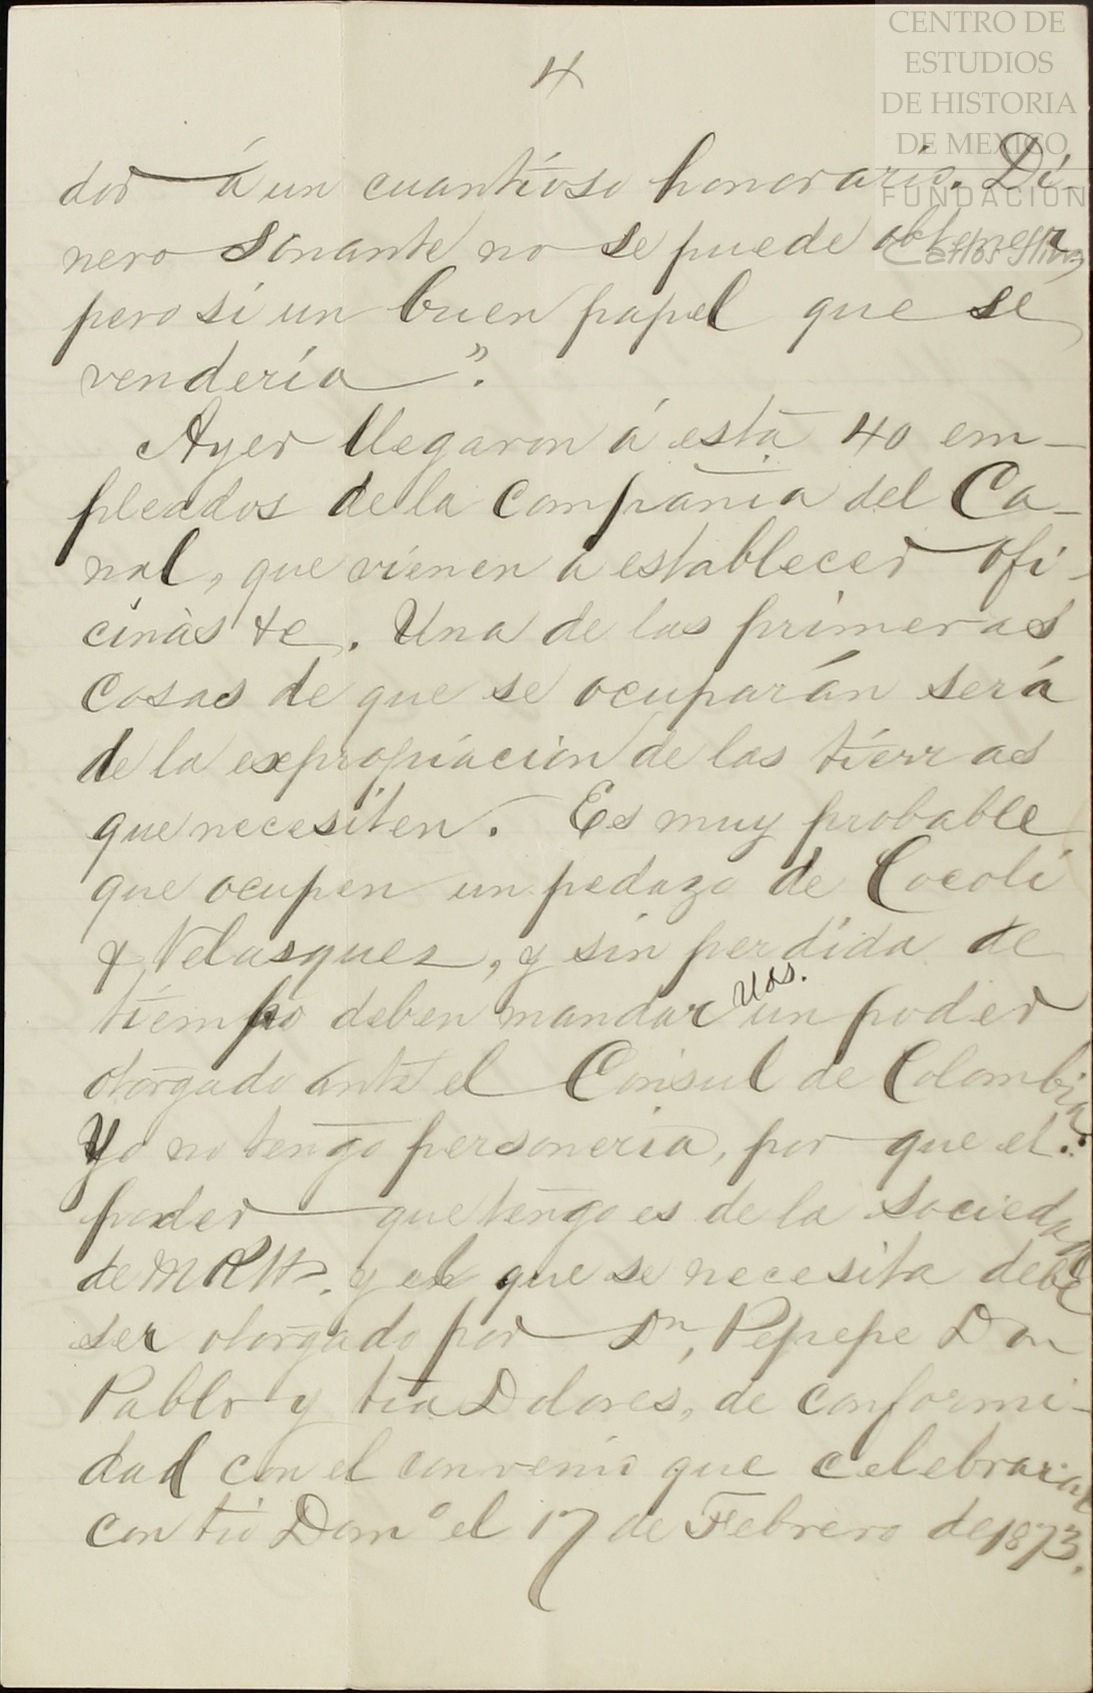 CENTRO DE
ESTUDIOS
DE HISTORIA
DE MEXICO
FUNDACIÓN
Carlos Slim
4
dor á un cuantioso honorario. Di-
nero sonante no se puede obtener,
pero si un buen papel que se
vendería".
Ayer llegaron á esta 40 em-
pleados de la Compañia del Ca-
nal, que vienen a establecer ofi-
cinas &c. Una de las primeras
cosas de que se ocuparán será
de la expropiacion de las tierras
que necesiten. Es muy probable
que ocupen un pedazo de Cocolí
y Velasquez, y sin perdida de
tiempo deben mandar Uds. un poder
otorgado ante el Cónsul de Colombia.
Yo no tengo personería, por que el
poder que tengo es de la sociedad
de M R H. y el que se necesita debe
ser otorgado por Dn, Pepepe Don
Pablo y tia Dolores, de conformi-
dad con el convenio que celebraran
con tio Domo el 17 de Febrero de 1873.